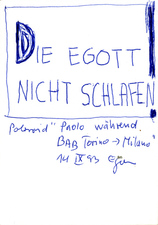 DIE EGOTT
NICHT SCHLAFEN
Polaroid "Paolo während
BAB Torino → Milano"
14 IX 93